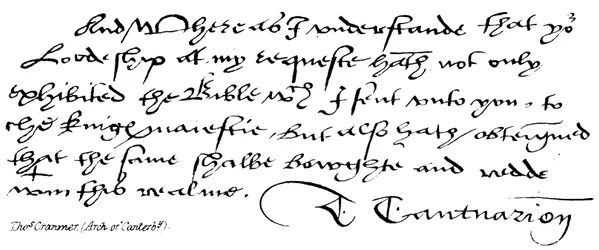 And Where as I understande that yor
Lordeship at my requeste hath not only
exhibited the Bible wch I sent unto you, to
the Kings maiestie, but also hath obteigned
that the same shalbe bowghte and redde
wtin this realme.
T. Cantuarien
Thos. Cranmer, (Arch. of Canterby.).